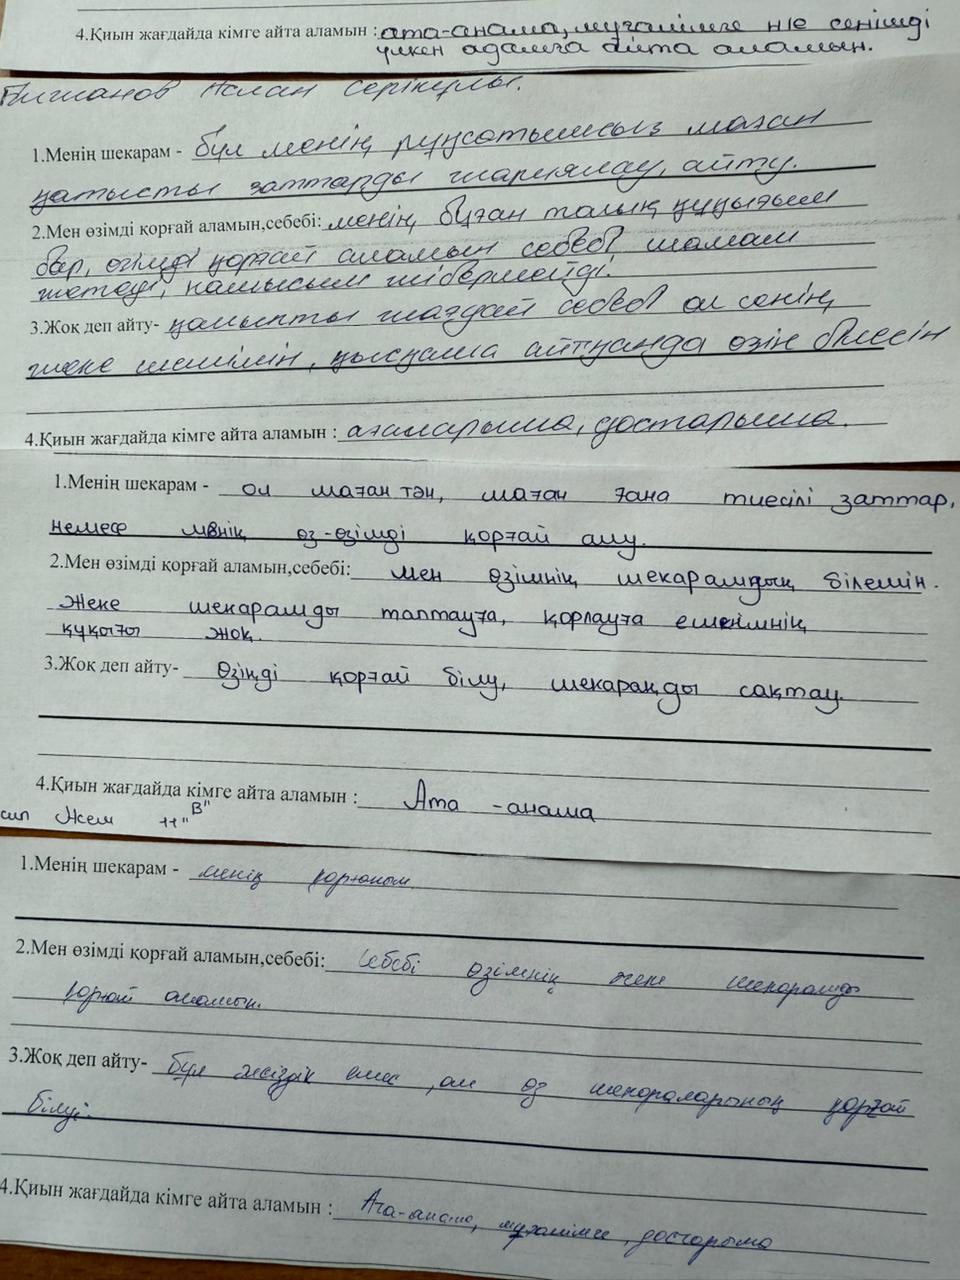 4.Қиын жағдайда кімге айта аламын : ата-анама, мұғалімге н/е сенімді
үлкен адамға айта аламын.
Аслан Серікұлы.
1.Менің шекарам - бұл менің рұқсатымсыз маған
қатысты заттарды жариялау, айту.
2.Мен өзімді қорғай аламын,себебі: менің бұған толық құқығым
бар, өзімді қорғай аламын себебі шамам
жетеді, намысым жібермейді.
3.Жоқ деп айту- қалыпты жағдай себебі ол сенің
жеке шешімін, қысқаша айтқанда өзін білесін
4.Қиын жағдайда кімге айта аламын : ағаларыма, достарыма.
1.Менің шекарам - ол маған тән, маған ғана тиесілі заттар,
немесе менің өз-өзімді қорғай алу.
2.Мен өзімді қорғай аламын,себебі: мен өзімнің шекарамдың білемін.
Жеке шекарамды таптауға, қорлауға ешкімнің
құқығы жоқ.
3.Жоқ деп айту- Өзіңді қорғай білу, шекараңды сақтау.
4.Қиын жағдайда кімге айта аламын : Ата -анама
11"В"
1.Менің шекарам - менің қорғаным
2.Мен өзімді қорғай аламын,себебі: Себебі өзімнің жеке шекарамды
қорғай аламын.
3.Жоқ деп айту- бұл әлсіздік емес , ол өз шекараларының қорғай
білуі.
4.Қиын жағдайда кімге айта аламын : Ата-анама, мұғалімге , достарыма